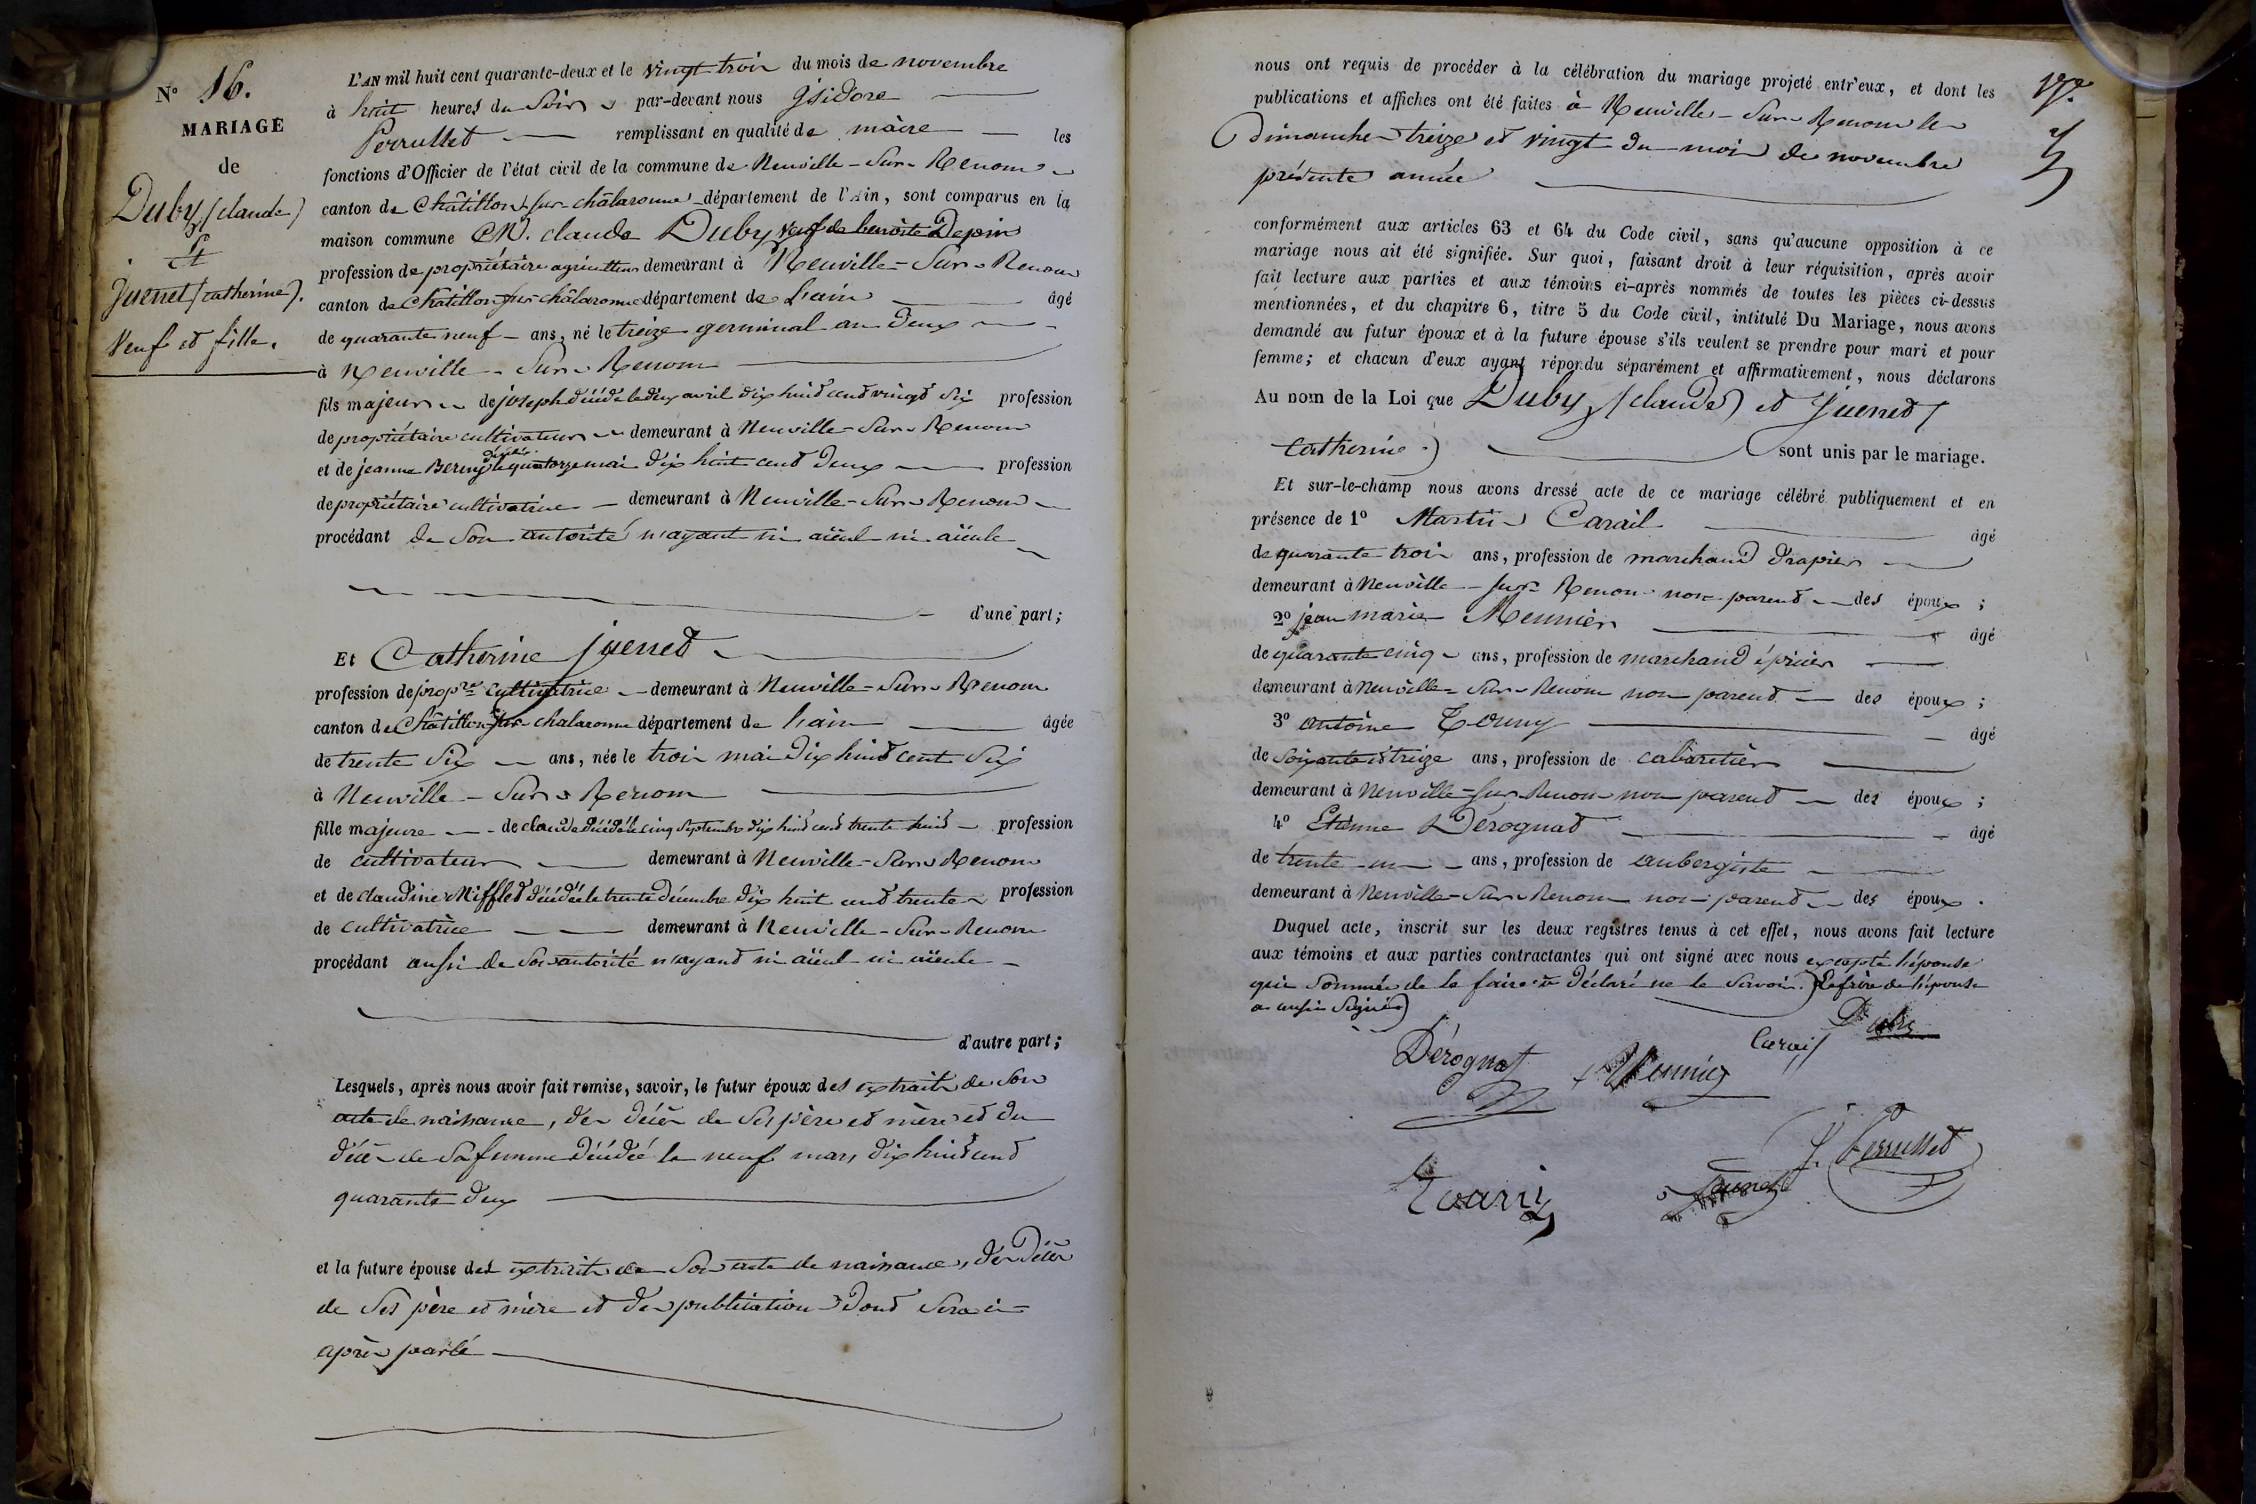 N° 16.
MARIAGE
de
Duby (claude)
Et
Juenet (catherine).
Veuf et fille.
L'AN mil huit cent quarante-deux et le vingt trois du mois de novembre
à huit heures du soir par-devant nous Isidore
Perrusset remplissant en qualité de maire les
fonctions d'Officier de l'état civil de la commune de Neuville-Sur-Renom
canton de Châtillon sur châlaronne département de l'Ain, sont comparus en la
maison commune M. claude Duby veuf de benoite Depin
profession de propriétaire agriculteur demeurant à Neuville-Sur-Renom
canton de Châtillon sur châlaronne département de l'ain âgé
de quarante neuf ans, né le treize germinal an deux
à Neuville-Sur-Renom
fils majeur de joseph décédé le deux avril dix huit cent vingt six profession
de propriétaire cultivateur demeurant à Neuville-Sur-Renom
et de jeanne décédée le quatorze mai dix huit cent deux profession
de propriétaire cultivatrice demeurant à Neuville-Sur-Renom
procédant de son autorité n'ayant ni aïeul ni aïeule
d'une part;
Et Catherine Juenet
profession de propre cultivatrice demeurant à Neuville-Sur-Renom
canton de Châtillon sur chalaronne département de l'ain âgée
de trente six ans, née le trois mai dix huit cent six
à Neuville-Sur-Renom
fille majeure de claude décédé le cinq septembre dix huit cent trente huit profession
de cultivateur demeurant à Neuville-Sur-Renom
et de claudine Niffled décédée le trente décembre dix huit cent trente profession
de cultivatrice demeurant à Neuville-Sur-Renom
procédant aussi de son autorité n'ayant ni aïeul ni aïeule
d'autre part;
Lesquels, après nous avoir fait remise, savoir, le futur époux des extraits de son
acte de naissance, des décès de ses père et mère et du
décès de sa femme décédée le neuf mars dix huit cent
quarante deux
et la future épouse des extraits de son acte de naissance, des décès
de ses père et mère et des publications dont sera ci-
après parlé
nous ont requis de procéder à la célébration du mariage projeté entr'eux, et dont les
publications et affiches ont été faites à Neuville-Sur-Renom les
dimanche treize et vingt du mois de novembre
présente année
conformément aux articles 63 et 64 du Code civil, sans qu'aucune opposition à ce
mariage nous ait été signifiée. Sur quoi, faisant droit à leur réquisition, après avoir
fait lecture aux parties et aux témoins ci-après nommés de toutes les pièces ci-dessus
mentionnées, et du chapitre 6, titre 5 du Code civil, intitulé Du Mariage, nous avons
demandé au futur époux et à la future épouse s'ils veulent se prendre pour mari et pour
femme; et chacun d'eux ayant répondu séparément et affirmativement, nous déclarons
Au nom de la Loi que Duby (claude) et Juenet (
catherine) sont unis par le mariage.
Et sur-le-champ nous avons dressé acte de ce mariage célébré publiquement et en
présence de 1° Martin Carail âgé
de quarante trois ans, profession de marchand drapier
demeurant à Neuville-sur-Renom non parent des époux;
2° jean marie Meunier âgé
de quarante cinq ans, profession de marchand épicier
demeurant à Neuville-Sur-Renom non parent des époux;
3° antoine âgé
de soixante et treize ans, profession de cabaretier
demeurant à Neuville-sur-Renom non parent des époux;
4° Etienne Dérognat âgé
de trente un ans, profession de aubergiste
demeurant à Neuville-Sur-Renom non parent des époux.
Duquel acte, inscrit sur les deux registres tenus à cet effet, nous avons fait lecture
aux témoins et aux parties contractantes qui ont signé avec nous excepté l'épouse
qui sommée de le faire a déclaré ne le savoir. Le frère de l'épouse
a aussi signé)
Duby
Carail
Dérognat
Meunier
J. Perrusset
Juenet